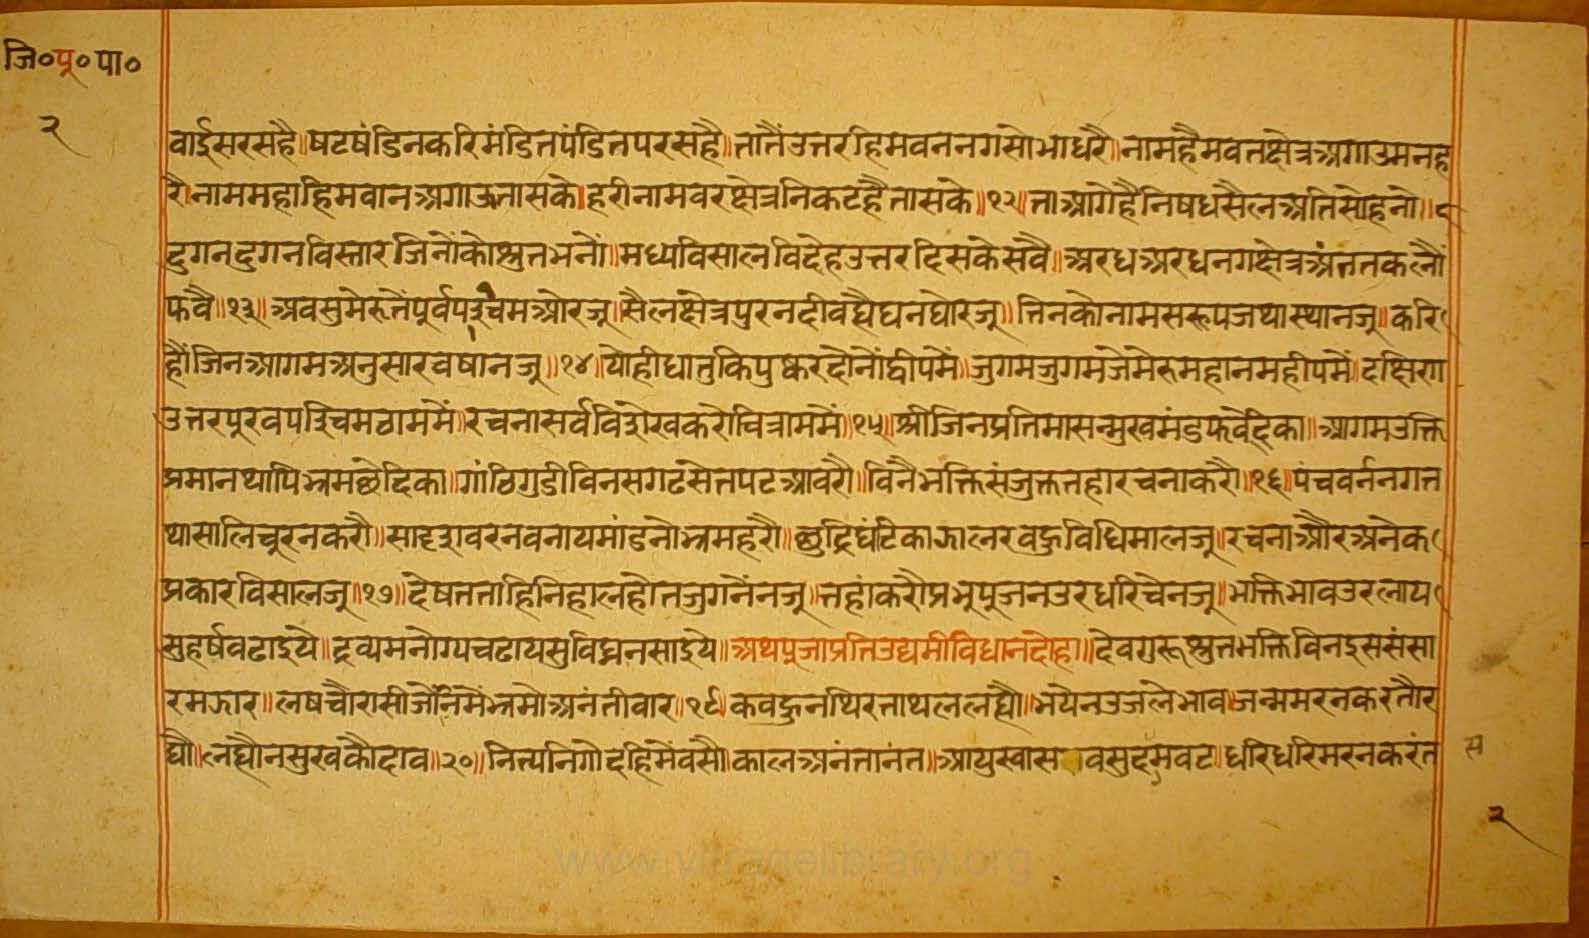 जि०पू०पा०
२
वाईसरसहै॥षटषंडिनकरिमंडितपंडितपरसहै॥तातैंउत्तरहिमवननगसोभाधरै॥नामहैमवतक्षेत्रअगाउमनह
रै॥नाममहाहिमवानअगाऊतासके॥हरीनामवरक्षेत्रनिकटहैतासके॥१२॥ताआगेहैनिषधसैलअतिसोहनो॥
दुगनदुगनविस्तारजिनोंकोश्रुतभनों॥मध्यविसालविदेहउत्तरदिसकेसवै॥अरधअरधनगक्षेत्रअंततकलौं
फवै॥१३॥अवसुमेरुतेंपूर्वपश्चिमओरजू॥सैलक्षेत्रपुरनदीवघैघनघोरजू॥तिनकोनामसरूपजथास्थानजू॥करि
हौंजिनआगमअनुसारवषानजू॥१४॥योहीधातुकिपुष्करदोनोंद्वीपमें॥जुगमजुगमजेमेरुमहानमहीपमें॥दक्षिण
उत्तरपूरवपश्चिमठाममें॥रचनासर्वविशेखकरोचित्राममें॥१५॥श्रीजिनप्रतिमासन्मुखमंडफवेदिका॥आगमउक्ति
प्रमानथापिभ्रमछेदिका॥गांठिगुडीविनसगटंसेतपटआवरौ॥विनैभक्तिसंजुक्ततहारचनाकरौ॥१६॥पंचवर्ननगत
थासालिचूरनकरौ॥सादृशवरनवनायमांडनोभ्रमहरौ॥छुद्रिघंटिकाझालरवहुविधिमालजू॥रचनाऔरअनेक
प्रकारविसालजू॥१७॥देषतताहिनिहालहोतजुगनेंनजू॥तहांकरौप्रभुपूजनउरधरिचेनजू॥भक्तिभावउरलाय
सुहर्षवढाइये॥द्रव्यमनोग्यचढायसुविघ्ननसाइये॥अथपूजाप्रतिउद्यमीविधानदोहा॥देवगुरूश्रुतभक्तिविनइससंसा
रमझार॥लषचौरासीजोंनिमेंभ्रमोअनंतीवार॥१९॥कवहुनथिरताथललह्यौ॥भयेनउजलेभाव॥जन्ममरनकरतौर
ह्यौ॥लह्यौनसुखकौदाव॥२०॥नित्यनिगोदहिमेंवसौ॥कालअनंतानंत॥आयुस्वासवसुदसमवट॥धरिधरिमरनकरंत
स
२
www.vitragelibrary.org